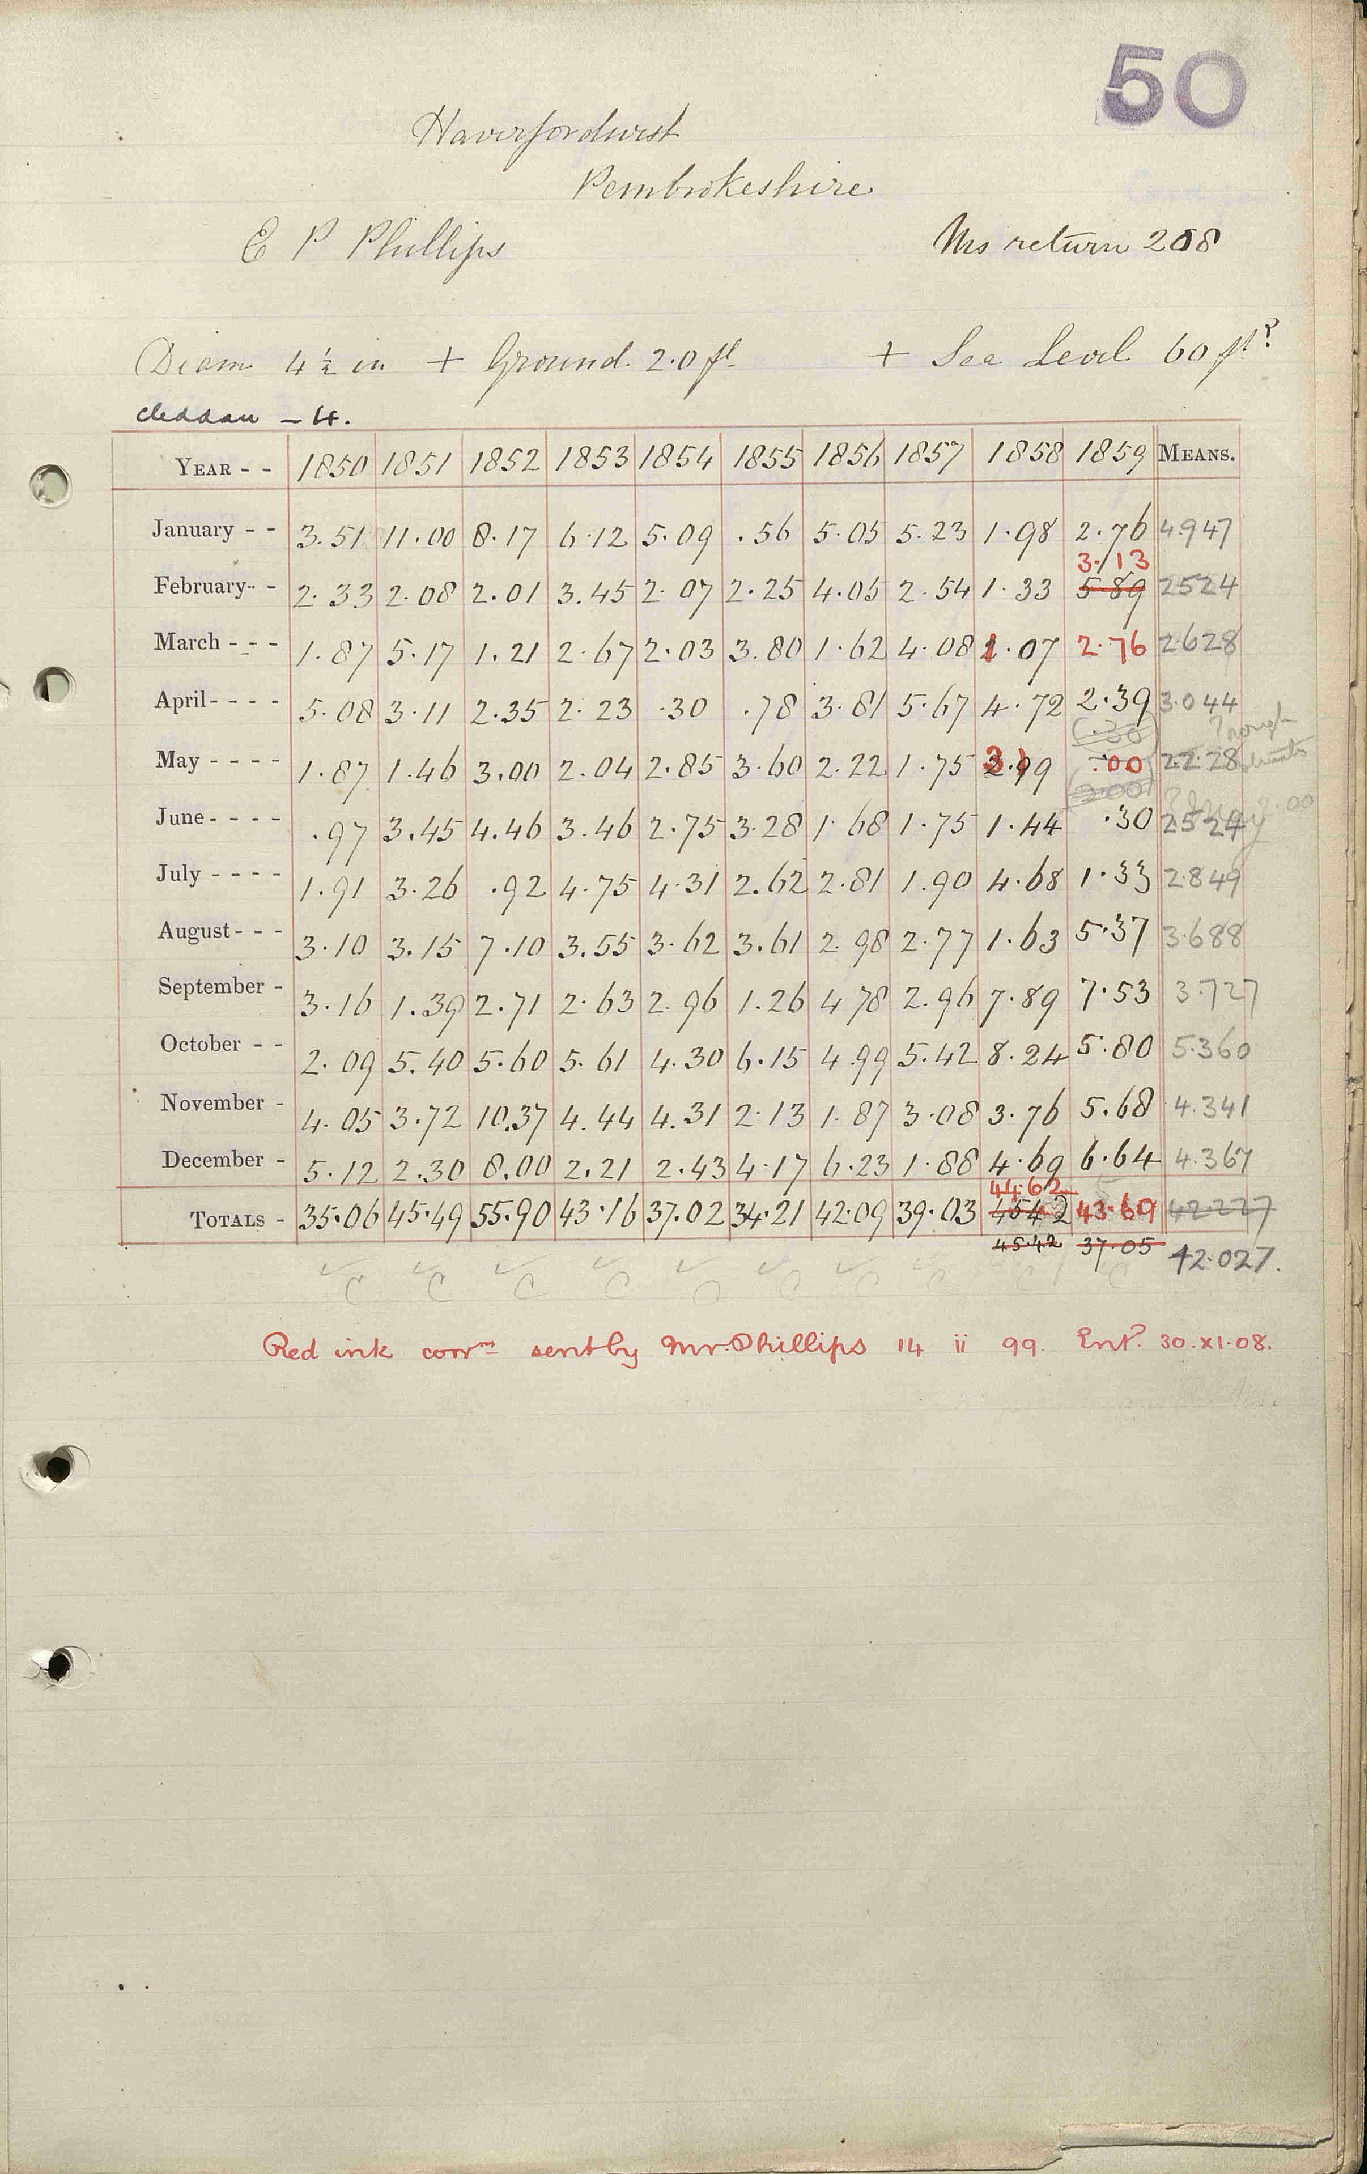 50
Haverfordwest
Pembrokeshire
E P Phillips Ms return 208
Diam 4½ in + Ground 2.0 ft + Sea Level 60 ft?
Cleddau – 4.
YEAR - - 1850 1851 1852 1853 1854 1855 1856 1857 1858 1859 MEANS.
January - - 3.51 11.00 8.17 6.12 5.09 .56 5.05 5.23 1.98 2.76 4.947
3.13
February - - 2.33 2.08 2.01 3.45 2.07 2.25 4.05 2.54 1.33 5.89 2.524
March - - - 1.87 5.17 1.21 2.67 2.03 3.80 1.62 4.08 1.07 2.76 2.628
April - - - - 5.08 3.11 2.35 2.23 .30 .78 3.81 5.67 4.72 2.39 3.044
May - - - - 1.87 1.46 3.00 2.04 2.85 3.60 2.22 1.75 3.49 .00 2.228
June - - - - .97 3.45 4.46 3.46 2.75 3.28 1.68 1.75 1.44 .30 2524
July - - - - 1.91 3.26 .92 4.75 4.31 2.62 2.81 1.90 4.68 1.33 2.849
August - - - 3.10 3.15 7.10 3.55 3.62 3.61 2.98 2.77 1.63 5.37 3.688
September - 3.16 1.39 2.71 2.63 2.96 1.26 4.78 2.96 7.89 7.53 3.727
October - - 2.09 5.40 5.60 5.61 4.30 6.15 4.99 5.42 8.24 5.80 5.360
November - 4.05 3.72 10.37 4.44 4.31 2.13 1.87 3.08 3.76 5.68 4.341
December - 5.12 2.30 8.00 2.21 2.43 4.17 6.23 1.88 4.69 6.64 4.367
44.62
TOTALS - 35.06 45.49 55.90 43.16 37.02 34.21 42.09 39.03 4542 43.69 42227
45.42 37.05 42.027.
Red ink corrns sent by Mr. Phillips 14 ii 99. Entd. 30.XI.08.